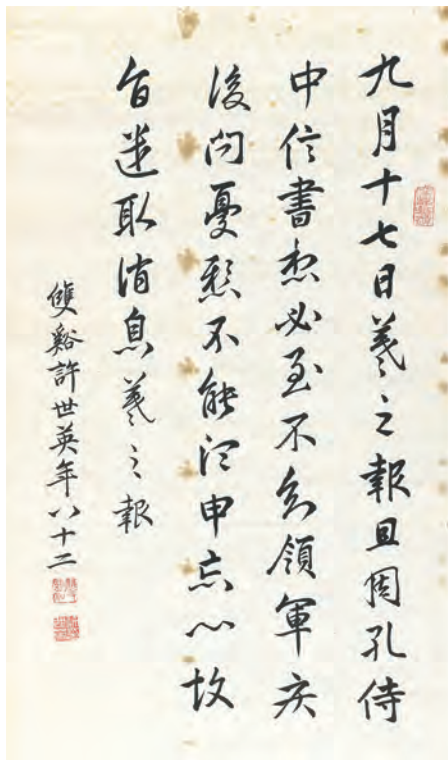 九月十七日羲之報且因孔侍
中信書想必至不知領軍疾
後問憂懸不能須臾忘心故
旨遣取消息羲之報
雙谿許世英年八十二